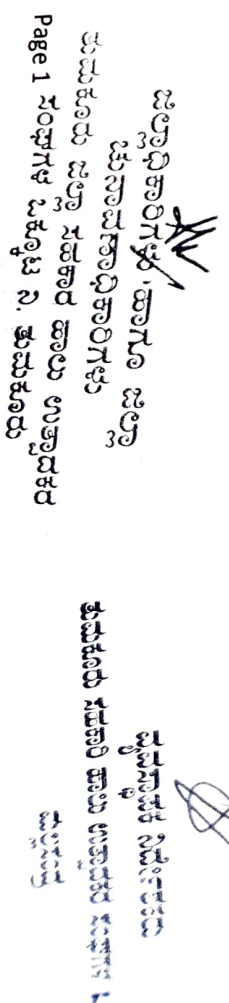 ಜಿಲ್ಲಾಧಿಕಾರಿಗಳು ಹಾಗೂ ಜಿಲ್ಲಾ
ಚುನಾವಣಾಧಿಕಾರಿಗಳು
ತುಮಕೂರು ಜಿಲ್ಲಾ ಸಹಕಾರ ಹಾಲು ಉತ್ಪಾದಕರ
Page 1 ಸಂಘಗಳ ಒಕ್ಕೂಟ ನಿ. ತುಮಕೂರು
ವ್ಯವಸ್ಥಾಪಕ ನಿರ್ದೇಶಕರು
ತುಮಕೂರು ಸಹಕಾರಿ ಹಾಲು ಉತ್ಪಾದಕರ ಸಂಘಗಳ
ಮಲ್ಲಸಂದ್ರ